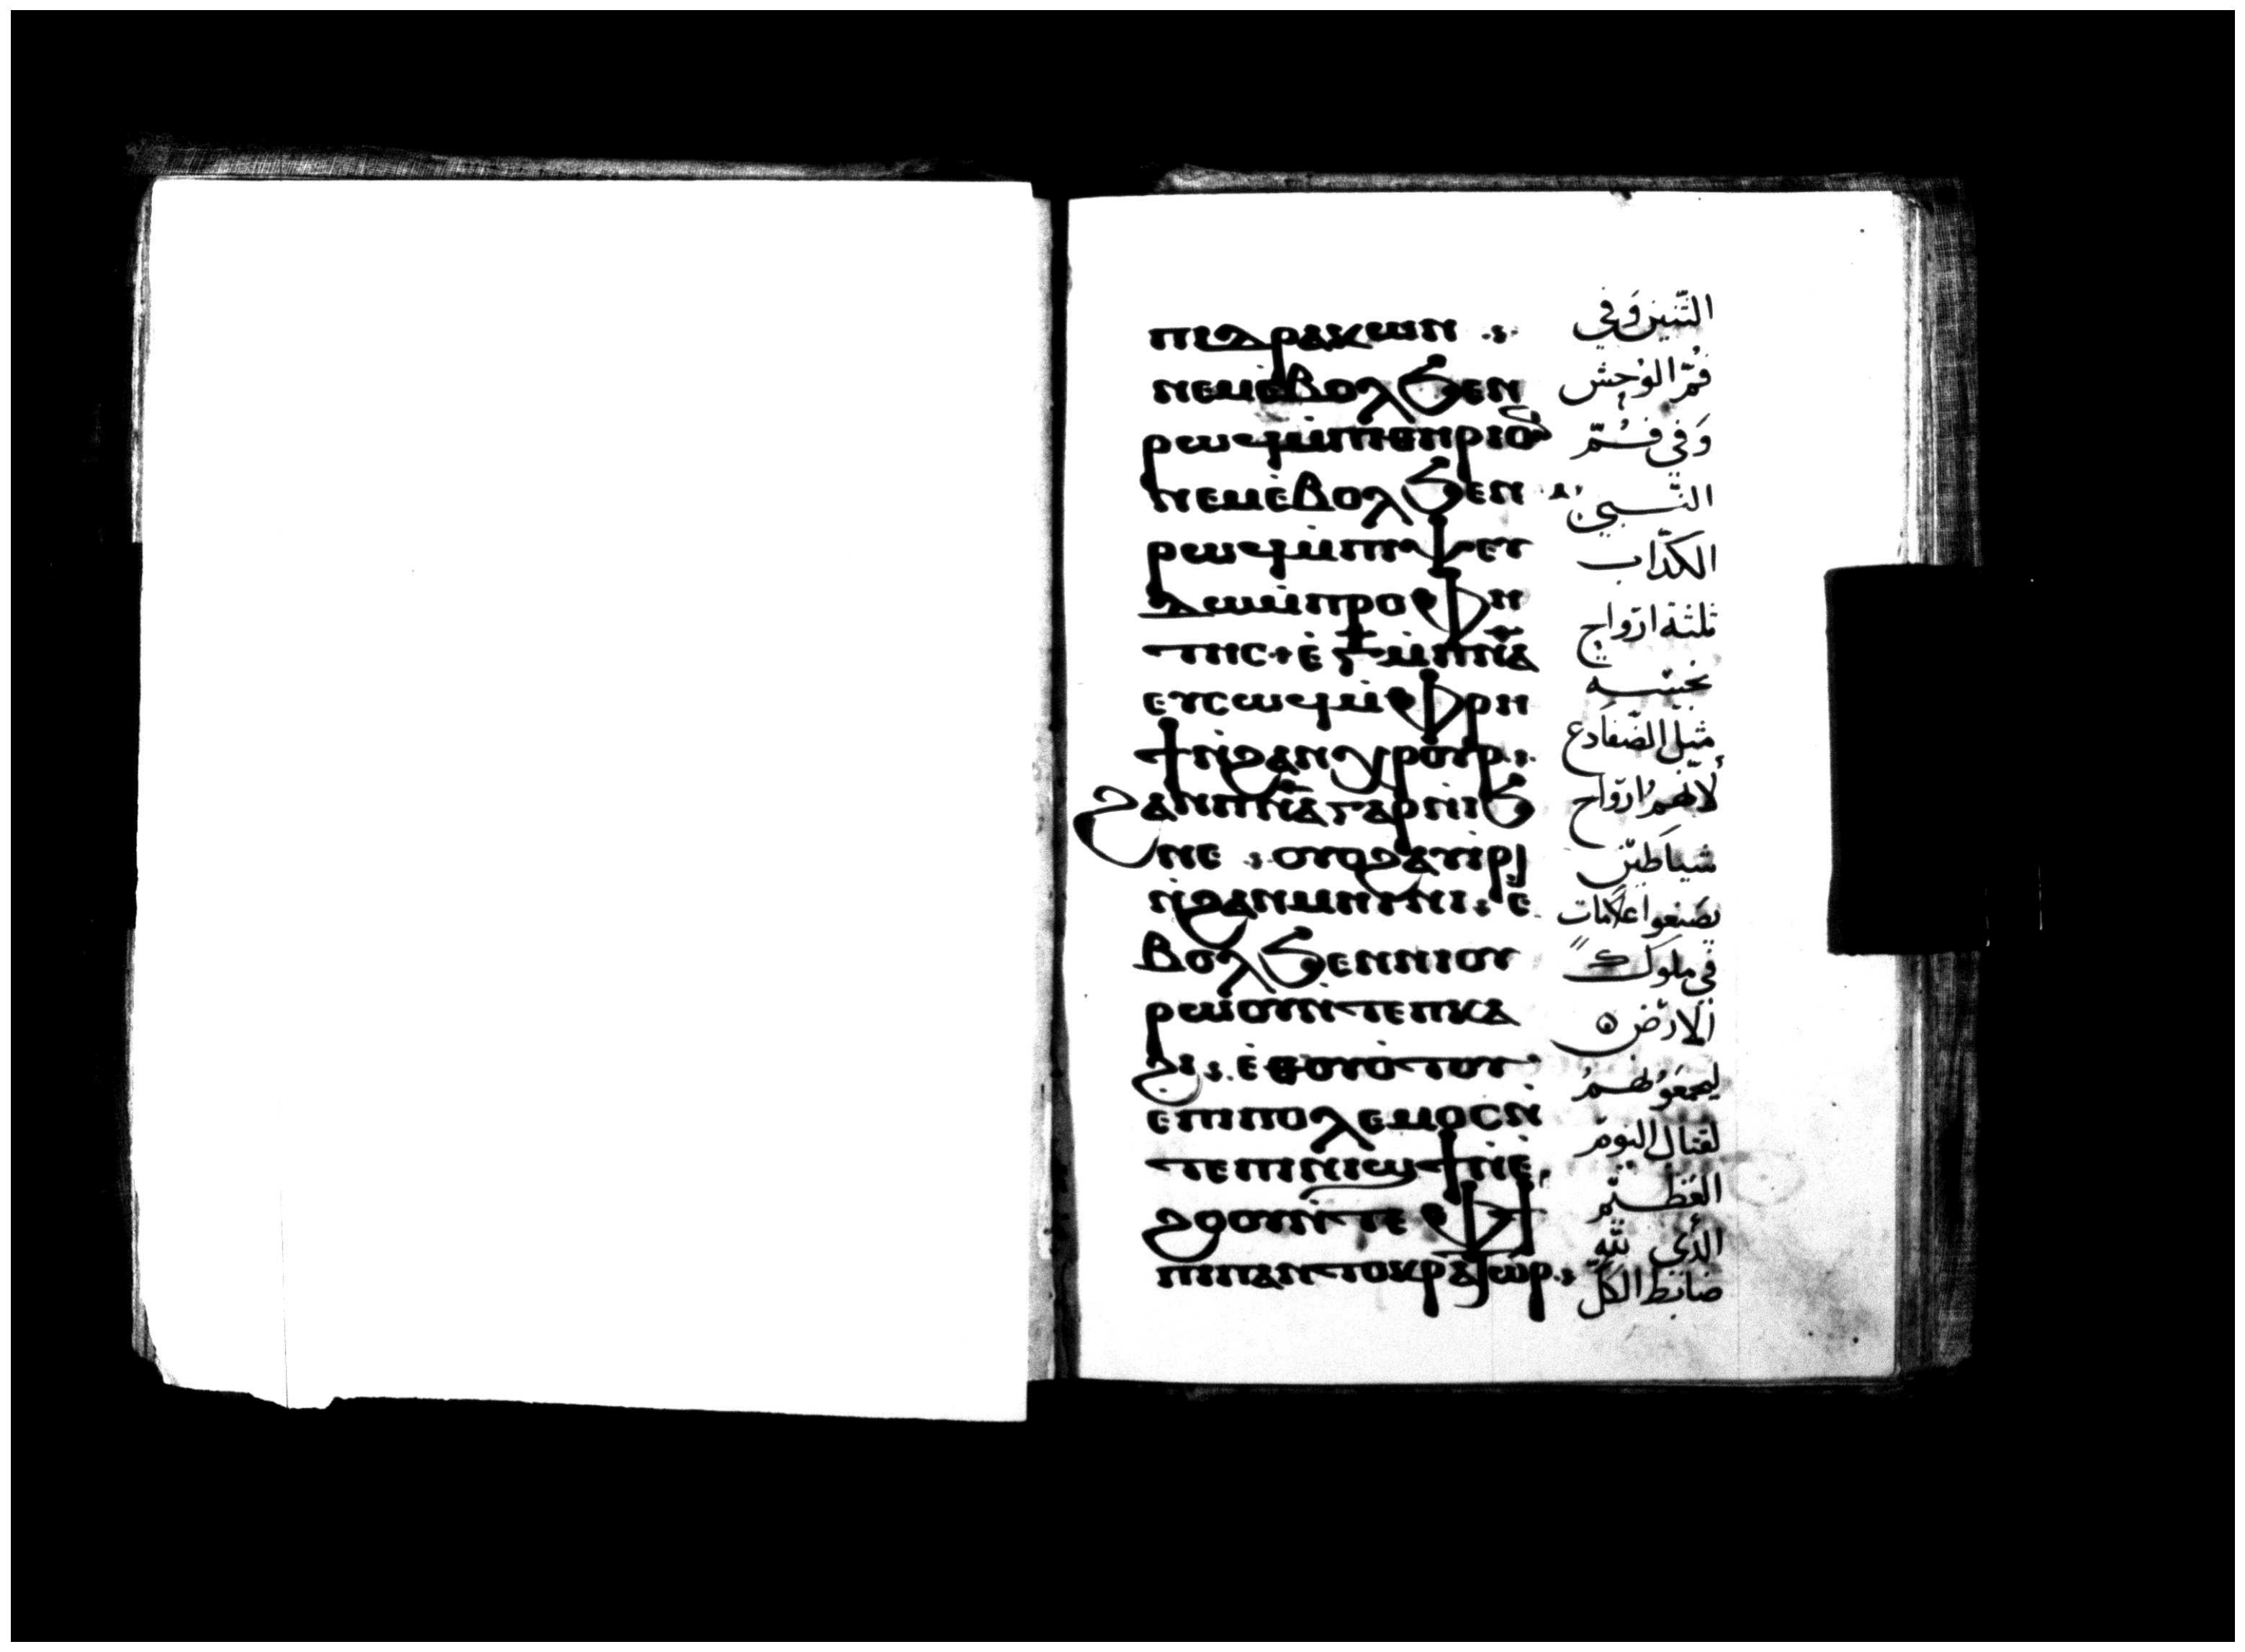 ⲡⲓⲇⲣⲁⲕⲱⲛ
ⲛⲉⲙⲉ̀ⲃⲟⲗϧⲉⲛ
ⲣⲱϥⲙ̀ⲡⲓⲑⲏⲣⲓⲟⲛ
ⲛⲉⲙⲉ̀ⲃⲟⲗϧⲉⲛ
ⲣⲱϥⲙ̀ⲡⲓⲯⲉⲩ
ⲇⲱⲙ̀ⲡⲣⲟⲫⲏ
ⲧⲏⲥ ⲉ̀ ⲅ̅ ⲙ̀ⲡ̅ⲛ̅ⲁ̅
ⲉⲩⲥⲱϥⲙ̀ⲫⲣⲏ
ϯⲛ̀ϩⲁⲛⲭⲣⲟⲩⲣ
ϩⲁⲛⲡ̅ⲛ̅ⲁ̅ⲅⲁⲣⲛ̀ⲓϧ
ⲛⲉ ⲟⲩⲟϩⲁⲩⲓ̀ⲣⲓ
ⲛ̀ϩⲁⲛⲙⲏⲓⲛⲓ ⲉ̀
ⲃⲟⲗϧⲉⲛⲛⲓⲟⲩ
ⲣⲱⲟⲩⲛ̀ⲧⲉⲡⲕⲁ
ϩⲓ ⲉ̀ⲑⲟⲩⲟ̀ⲧⲟⲩ
ⲉⲡⲓⲡⲟⲗⲉⲙⲟⲥⲛ̀
ⲧⲉⲡⲓⲛⲓϣϯⲛ̀ⲉ̀
ϩⲟⲟⲩⲛ̀ⲧⲉⲫϯ
ⲡⲓⲡⲁⲛⲧⲟⲕⲣⲁⲧⲱⲣ
التنين وفي
فم الوحش
وفي فم
النبي
الكذاب
ثلثة ارواح
نجسه
مثل الضفادع
لانهم ارواح
شياطين
يصنعوا علامات
في ملوك
الارض
ليجمعوهم
لقتال اليوم
العظيم
الذي لله
ضابط الكل